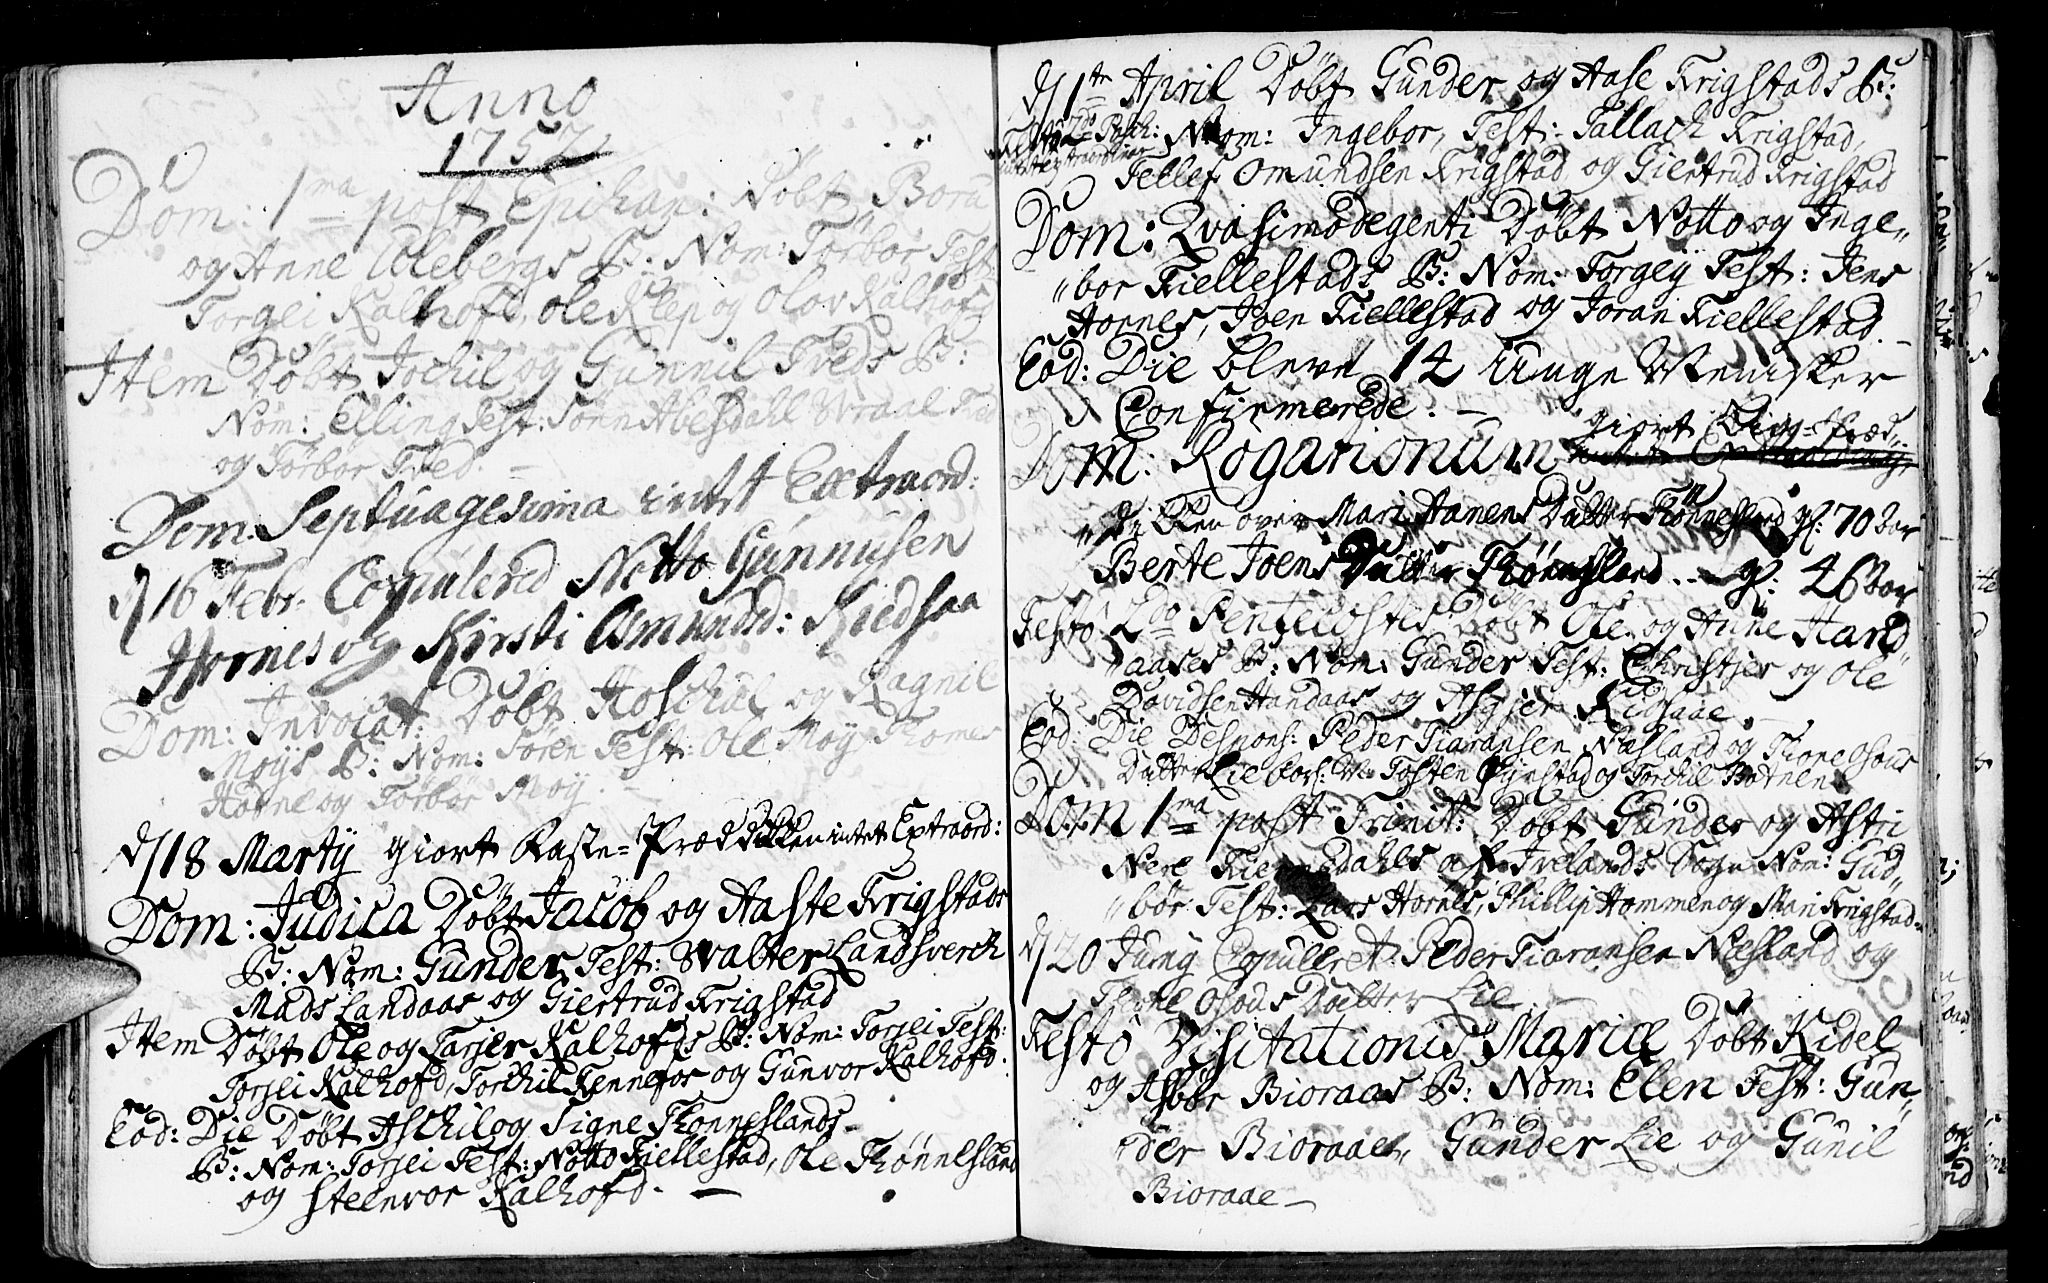 Anno
1757
Dom: 1ma post Epiphan: Døbt Boru
og Anne Ulebergs B: Nom: Torbor Test
Torgei Kalhofd, Ole Klep og Olov Kalhofd
Item Døbt Jochil og Gunnil Treds B:
Nom: Elling Test: Søren Abesdahl Wraal
og Torbor Tred. –
Dom. Septuagesima intet Extraord:
d/ 16 Febr. Copulered Notto Gunnusen
Hornes og Kirsti Asmundsd: Kiedsaa
Dom: Invocat: Døbt Aschil og Ragnil
Moys B: Nom: Søren Test: Ole Moy, Thomes
Hodne og Torbor Moy. –
d/ 18 Martij giort Faste-Præddikken intet Extraord:
Dom: Judica Døbt Jacob og Aaste Krigstads
B: Nom: Gunder, Test: Walter Landsverch
Mads Landaas og Giertrud Krigstad
Item Døbt Ole og Tarjer Kalhofds B: Nom: Torjei Test:
Torjei Kalhofd, Torchil Kennefos og Gunvor Kalhofd.
Eod: Die Døbt Aschil og Signe Thonneslands
B: Nom: Torjei Test: Notto Kiellestad, Ole Thønnesland
og Steenvor Kalhofd. –
d/ 1te April Døbt Gunder og Aase Krigstads B:
Festo 2do Pasch: Nom: Ingebor, Test: Tallach Krigstad,
intet extraordinair Tellef Omundsen Krigstad og Giertrud Krigstad
Dom: Qvasimodegenti Døbt Notto og Inge„
„bor Kiellestads B: Nom: Torgey Test: Jens
Hornes, Joen Kiellestad og Joran Kiellestad. –
Eod: Die bleve 14 Unge Menisker
Confirmerede. –
Dom: Rogationum giort Liig-Præd„
„dikken over Mari Hanens Datter Thønnesland gl: 70 Aar
Berte Joens Datter Thønnesland . . gl: 46 Aar
Festo 2do Pentecostes Døbt Ole og Anne Hand„
„aases B: Nom: Gunder Test: Christjer og Ole
Davidsen Handaas og Asgjer Kidsaae. –
Eod: Die Despons: Peder Tiaransen Næsland og Thone Osous
Datter Lie Forl: W: Tosten Øynstad og Torchil Botnen
Dom 1ma post Trinit: Døbt Gunder og Astri
Nere Kiernedahls af Ivelands Sogn Nom: Gud„
„bor Test: Lars Hornes, Phillip Hommen og Mari Krigstad. –
d/ 20 Junij Copulleret Peder Tiaransen Næsland og
Thone Osous Datter Lie –
Festo Visitationis Mariæ Døbt Kidel
og Asbor Bioraas B: Nom: Elen Test: Gun„
„der Bioraae, Gunder Lie og Gunil
Bioraae –